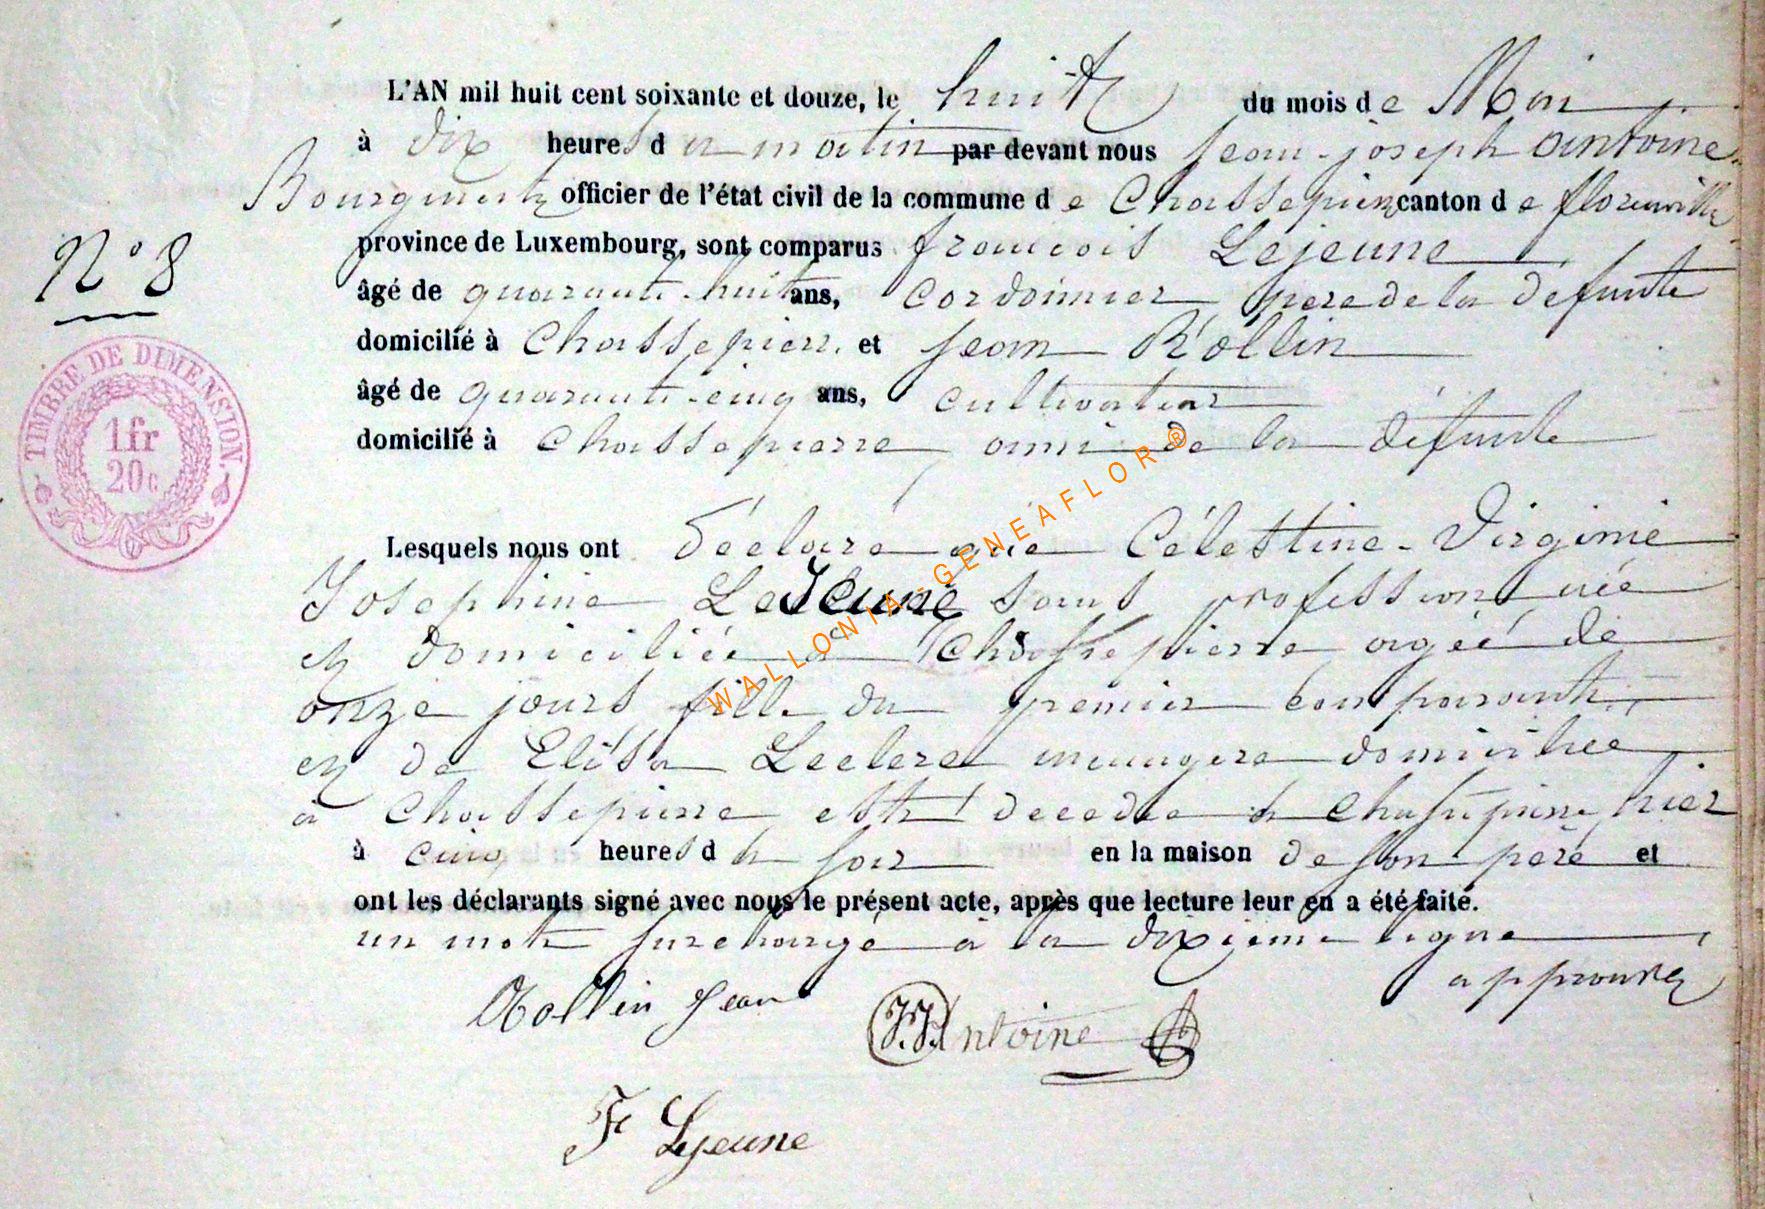 L'AN mil huit cent soixante et douze, le huit du mois de Mai
à dix heures du matin par devant nous Jean-joseph Antoine
officier de l'état civil de la commune de Chassepierre canton de florenville
N° 8
province de Luxembourg, sont comparus francois Lejeune
âgé de quarante-huit ans, cordonnier pere de la défunte
domicilié à Chassepierre et jean Rollin
âgé de quarante-cinq ans, cultivateur
domicilié à Chassepierre, ami de la défunte
TIMBRE DE DIMENSION.
1fr
20c
Lesquels nous ont déclaré que Célestine-Virginie
Josephine LeJeune sans profession née
et domiciliée à Chassepierre agée de
onze jours fille du premier comparant,
et de Elisa Leclere menagere domiciliée
à Chassepierre est décedée à Chassepierre hier
à cinq heures du soir en la maison de son père et
ont les déclarants signé avec nous le présent acte, après que lecture leur en a été faite.
un mot surchargé à la dixieme ligne
approuvé
Rollin Jean
J.J. Antoine
F Lejeune
WALLONIA-GENEAFLOR®